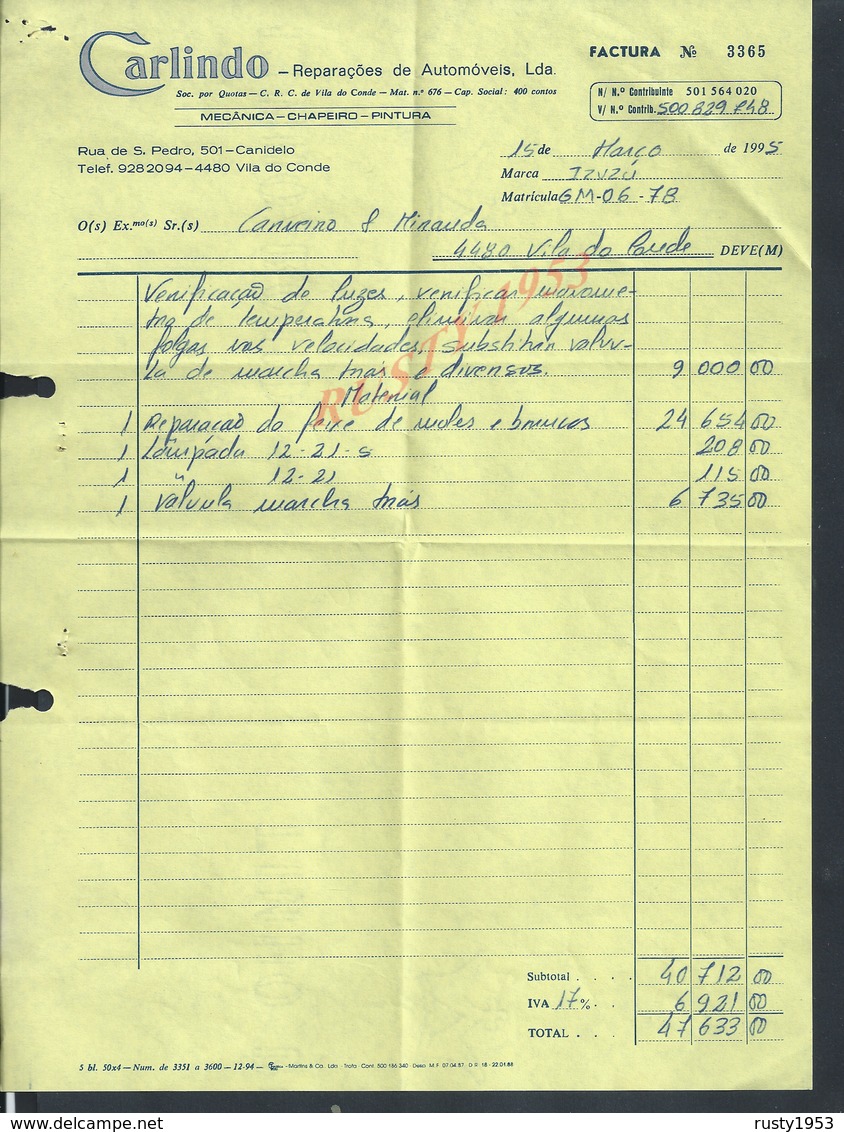 Carlindo – Reparações de Automóveis, Lda.
Soc. por Quotas — C. R. C. de Vila do Conde — Mat. n.º 676 — Cap. Social: 400 contos
MECÂNICA – CHAPEIRO – PINTURA
FACTURA Nº 3365
N/ N.º Contribuinte 501 564 020
V/ N.º Contrib. 500 829 748
Rua de S. Pedro, 501 – Canidelo
Telef. 928 2094 – 4480 Vila do Conde
15 de Março de 1995
Marca Izuzú
Matrícula GM-06-78
O(s) Ex.mo(s) Sr.(s) & Miranda
4480 Vila do Conde DEVE(M)
Verificação de luzes, verificar manome-
tro de temperatura, eliminar algumas
folgas nas velocidades, substituir valvu-
la de marcha tras e diversos. 9 000 00
Material
1 Reparação do feixe de moles e broncos 24 654 00
1 Lâmpada 12-21-5 208 00
1 " 12-21 115 00
1 Valvula marcha tras 6 735 00
RUSTY 1953
Subtotal . . . . 40 712 00
IVA 17 % . . 6 921 00
TOTAL . . . 47 633 00
5 bl. 50x4 — Num. de 3351 a 3600 — 12-94 — Martins & Co. Lda. - Trofa - Cont. 500 186 340 - Desp. M.F. 07.04.87 - D.R. 18 - 22.01.88
rusty1953